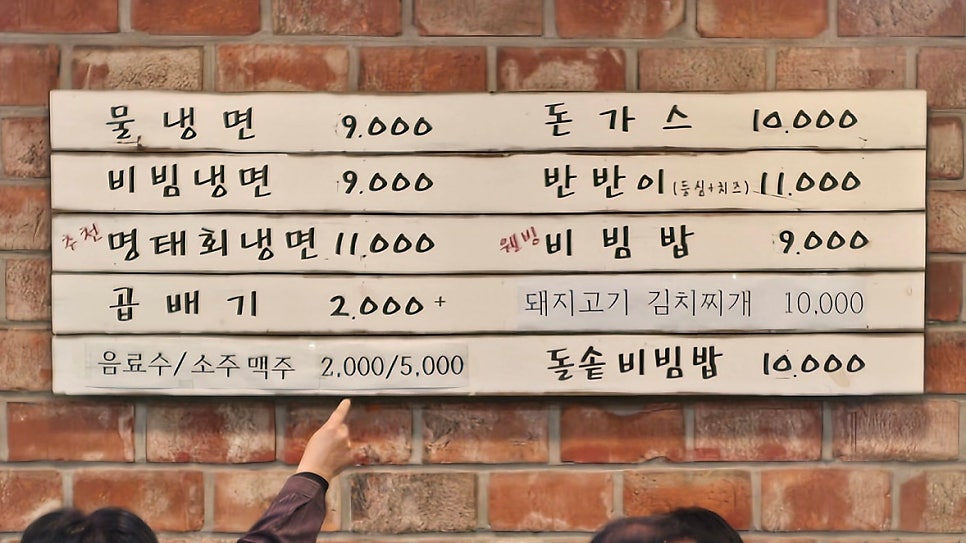 물냉면 9.000
비빔냉면 9.000
추천 명태회냉면 11.000
곱배기 2.000+
음료수/소주맥주 2,000/5,000
돈가스 10.000
반반이(등심+치즈) 11.000
웰빙 비빔밥 9.000
돼지고기 김치찌개 10,000
돌솥비빔밥 10.000